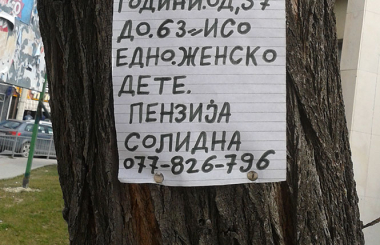 ГОДИНИ.ОД,57
ДО.63-ИСО
ЕДНО.ЖЕНСКО
ДЕТЕ.
ПЕНЗИЈА
СОЛИДНА
077-826-796